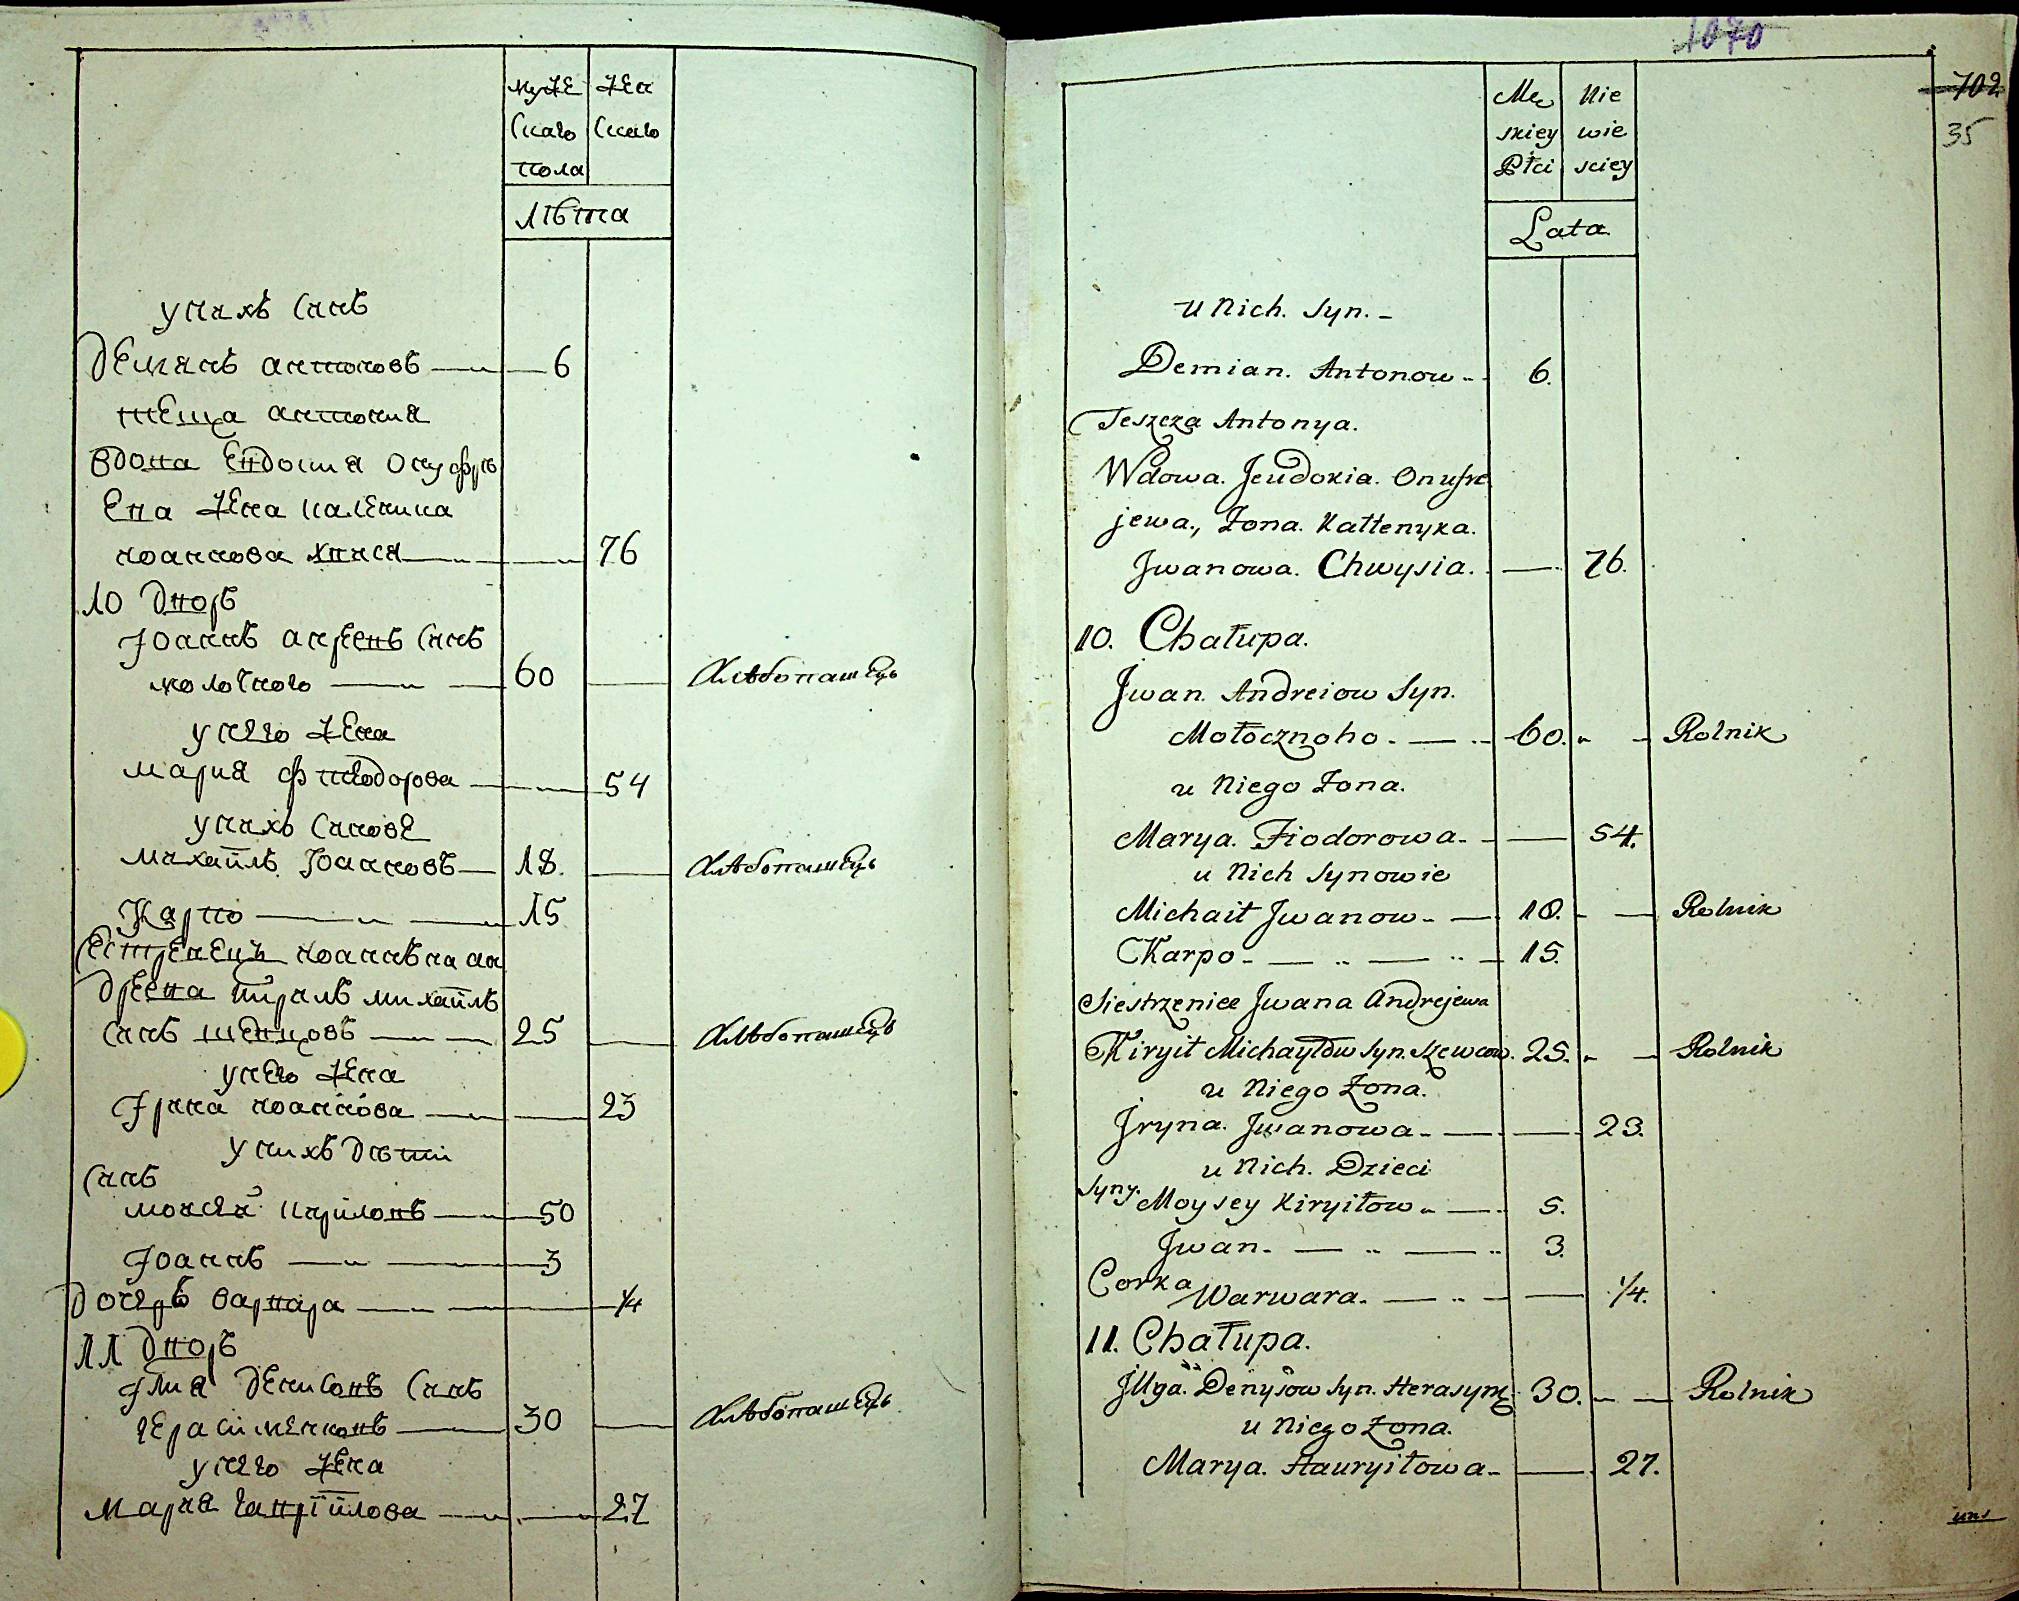 муже
скаго
пола
жен
скаго
лѣта
у нихъ синъ
Демянъ антоновъ 6
теща антонія
вдова Евдокия онуфрі
ева жена каленика
иоаннова хвися 76
10 дворъ
Іоаннъ андреевъ синъ
молочного 60 хлѣбопашецъ
у него жена
мария фтеодорова 54
у нихъ синове
михаилъ Іоанновъ 18. хлѣбопашецъ
Карпо 15
сестренецъ иоанна ан
дреева кирилъ михаилъ
синъ шевцовъ 25 хлѣбопашецъ
у него жена
Ірина иоаннова 23
у нихъ дѣти
синъ
моисей кириловъ 50
Іоаннъ 3
дочеръ варвара 1/4
11 дворъ
Ілия денисовъ синъ
герасименковъ 30 хлѣбопашецъ
у него жена
мария гавриилова 27
1070
702
35
Mę
skiey
Płci
Nie
wie
sciey
Lata
u Nich. Syn. -
Demian. Antonow 6.
Teszcza Antonya.
Wdowa. Jeudokia. Onufre
jewa., Żona. Kallenyka.
Jwanowa. Chwysia. 76.
10. Chałupa.
Jwan. Andreiow Syn.
Mołocznoho. 60. Rolnik
u Niego Żona.
Marya. Fiodorowa. 54.
u Nich Synowie
Michaił Jwanow 18. Rolnik
Karpo 15.
Siestrzeniec Jwana Andrejewa
Kiryił Michayłów Syn. Szewcow. 25. Rolnik
u Niego Żona.
Jryna. Jwanowa 23.
u Nich. Dzieci
Syny. Moysey Kiryiłow 5.
Jwan 3.
Corka Warwara. 1/4.
11. Chałupa.
Jllya. Denysow Syn. Herasym 30. Rolnik
u Niego Żona.
Marya. Hauryiłowa 27.